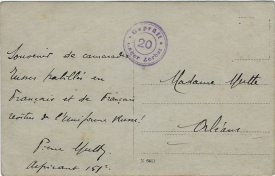 Souvenir de camarades
Russes habillés en
Français et de Français
vêtus de l'Uniforme Russe!
Aspirant 151e
Geprüft
20
Madame
Orléans